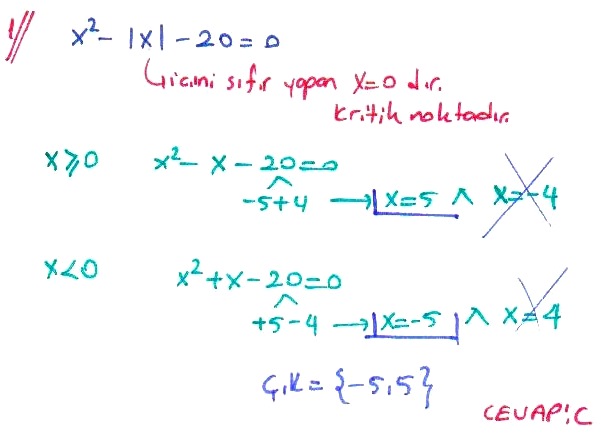 1) x² - |x| - 20 = 0
İçini sıfır yapan x=0 dır.
kritik noktadır.
x⩾0 x² - x - 20 = 0
-5+4 → x=5 ∧ x=-4
x<0 x² + x - 20 = 0
+5-4 → x=-5 ∧ x=4
Ç.K = {-5,5}
CEVAP:C